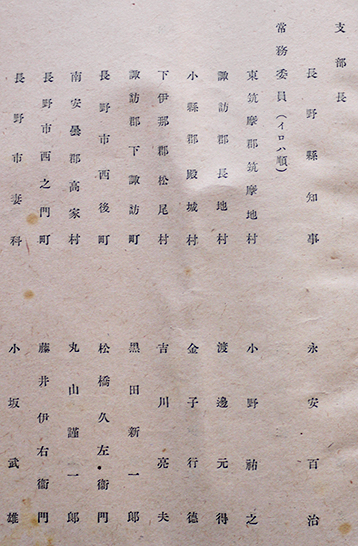 支部長
長野縣知事 永安百治
常務委員(イロハ順)
東筑摩郡筑摩地村 小野祐之
諏訪郡長地村 渡邊元得
小縣郡殿城村 金子行德
下伊那郡松尾村 吉川亮夫
諏訪郡下諏訪町 黒田新一郎
長野市西後町 松橋久左衞門
南安曇郡高家村 丸山謹一郎
長野市西之門町 藤井伊右衞門
長野市妻科 小坂武雄